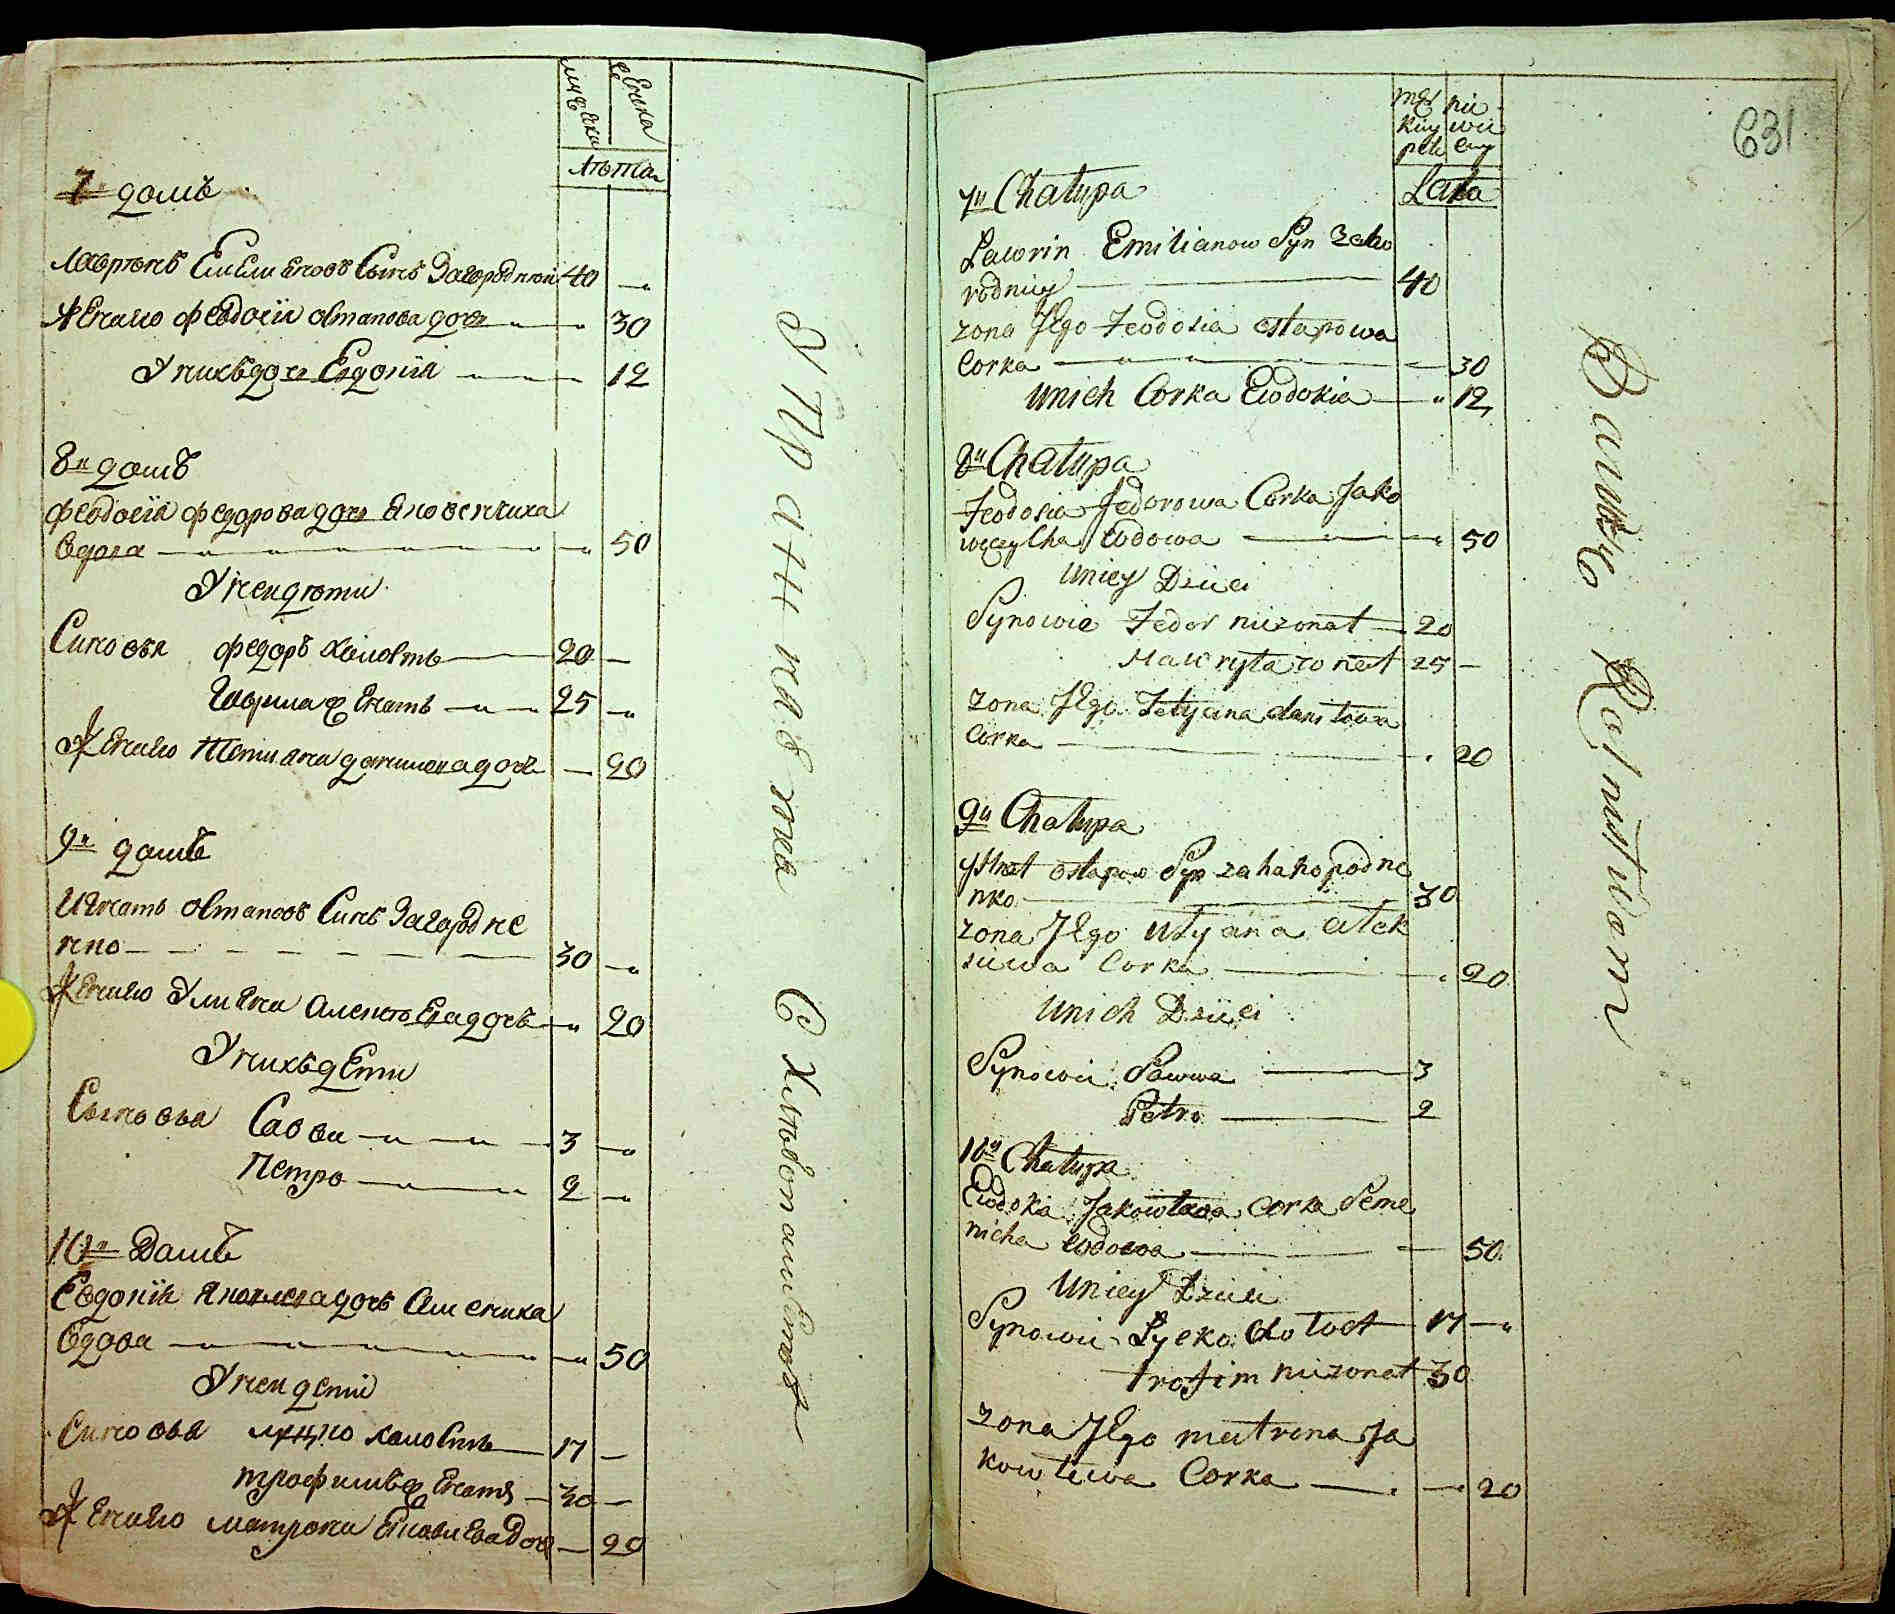 мужеска
женска
лѣта
7 домъ
Лавринъ Емелияновъ Сынъ Загородний 40
Жена Его феодосия Остапова дочь 30
У нихъ дочь Евдокия 12
8й домъ
феодосия федорова дочь Яковенчиха
вдова 50
У ней дѣти
Синовья федоръ холостъ 20
Гаврила женатъ 25
Жена Его Тетияна данилова дочь 20
9й домъ
Игнатъ Остаповъ Синъ Загородне
нко 30
Жена Его Улияна Алексѣева дочь 20
У нихъ дети
Сыновья Савва 3
Петро 2
10й Домъ
Евдокия Яковлева дочь Семениха
вдова 50
У ней дети
Синовья луцко холостъ 17
трофимъ женатъ 30
Жена Его матрона Яковлева дочь 20
631
Lata
7й Chatupa
Lawrin Emilianow Syn Zaho
rodniy 40
zona Jego Feodosia ostapowa
Corka 30
unich Corka Ewdokia 12
8й Chatupa
Feodosia Fedorowa Corka Jako
wczycha wdowa 50
uniey Dzieci
Synowie Fedor niezonat 20
Hawryta zonat 25
zona Jego Tetyana danitowa
Corka 20
9й Chatupa
Ihnat ostapow Syn zahahopodne
nko 30
zona Jego Ulyana alek
siewa Corka 20
Unich Dzieci
Synowie Sawwa 3
Petro 2
10й Chatupa
Ewdokia Jakowlewa Corka Seme
nicha wdowa 50
uniey Dzieci
Synowie Lycko Holost 17
trofim niezonat 30
zona Jego matrona Ja
kowlewa Corka 20